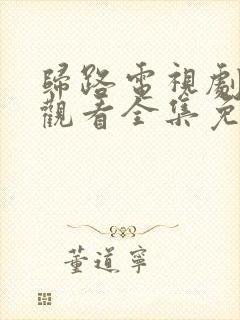 歸路電視劇
觀看全集免
董道寧